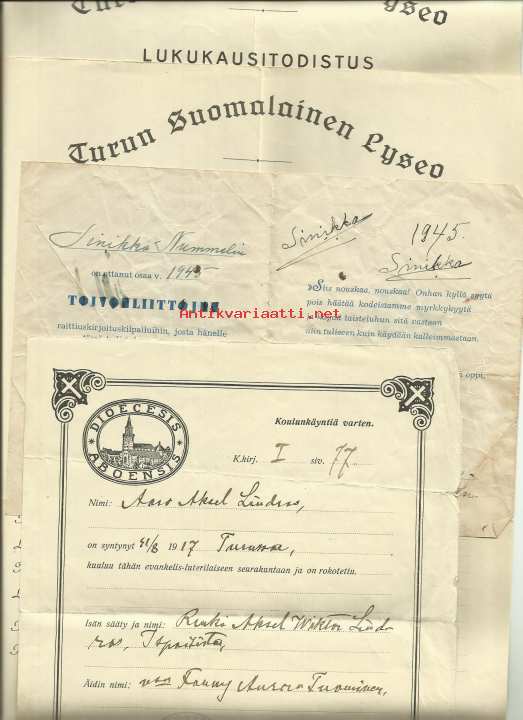 Turun Suomalainen Lyseo
LUKUKAUSITODISTUS
Turun Suomalainen Lyseo
Sinikka Nummelin
on ottanut osaa v. 1945
TOIVONLIITTOJEN
raittiuskirjoituskilpailuihin, josta hänelle
Sinikka
1945.
Sinikka
»Siis nouskaa, nouskaa! Onhan kyllä syytä
pois häätää kodeissamme myrkkykyytä
ja käydä taisteluhun sitä vastaan
niin tuliseen kuin käydään kalleimmastaan.
oppi,
Antikvariaatti.net
DIOECESIS ABOENSIS
Koulunkäyntiä varten.
K.kirj. I siv. 77
Nimi: Aaro Aksel Lindros,
on syntynyt 31/8 1917 Turussa,
kuuluu tähän evankelis-luterilaiseen seurakuntaan ja on rokotettu.
Isän sääty ja nimi: Aksel Waktor Lind-
ros,
Äidin nimi: Fanny Aurora Tuominen,